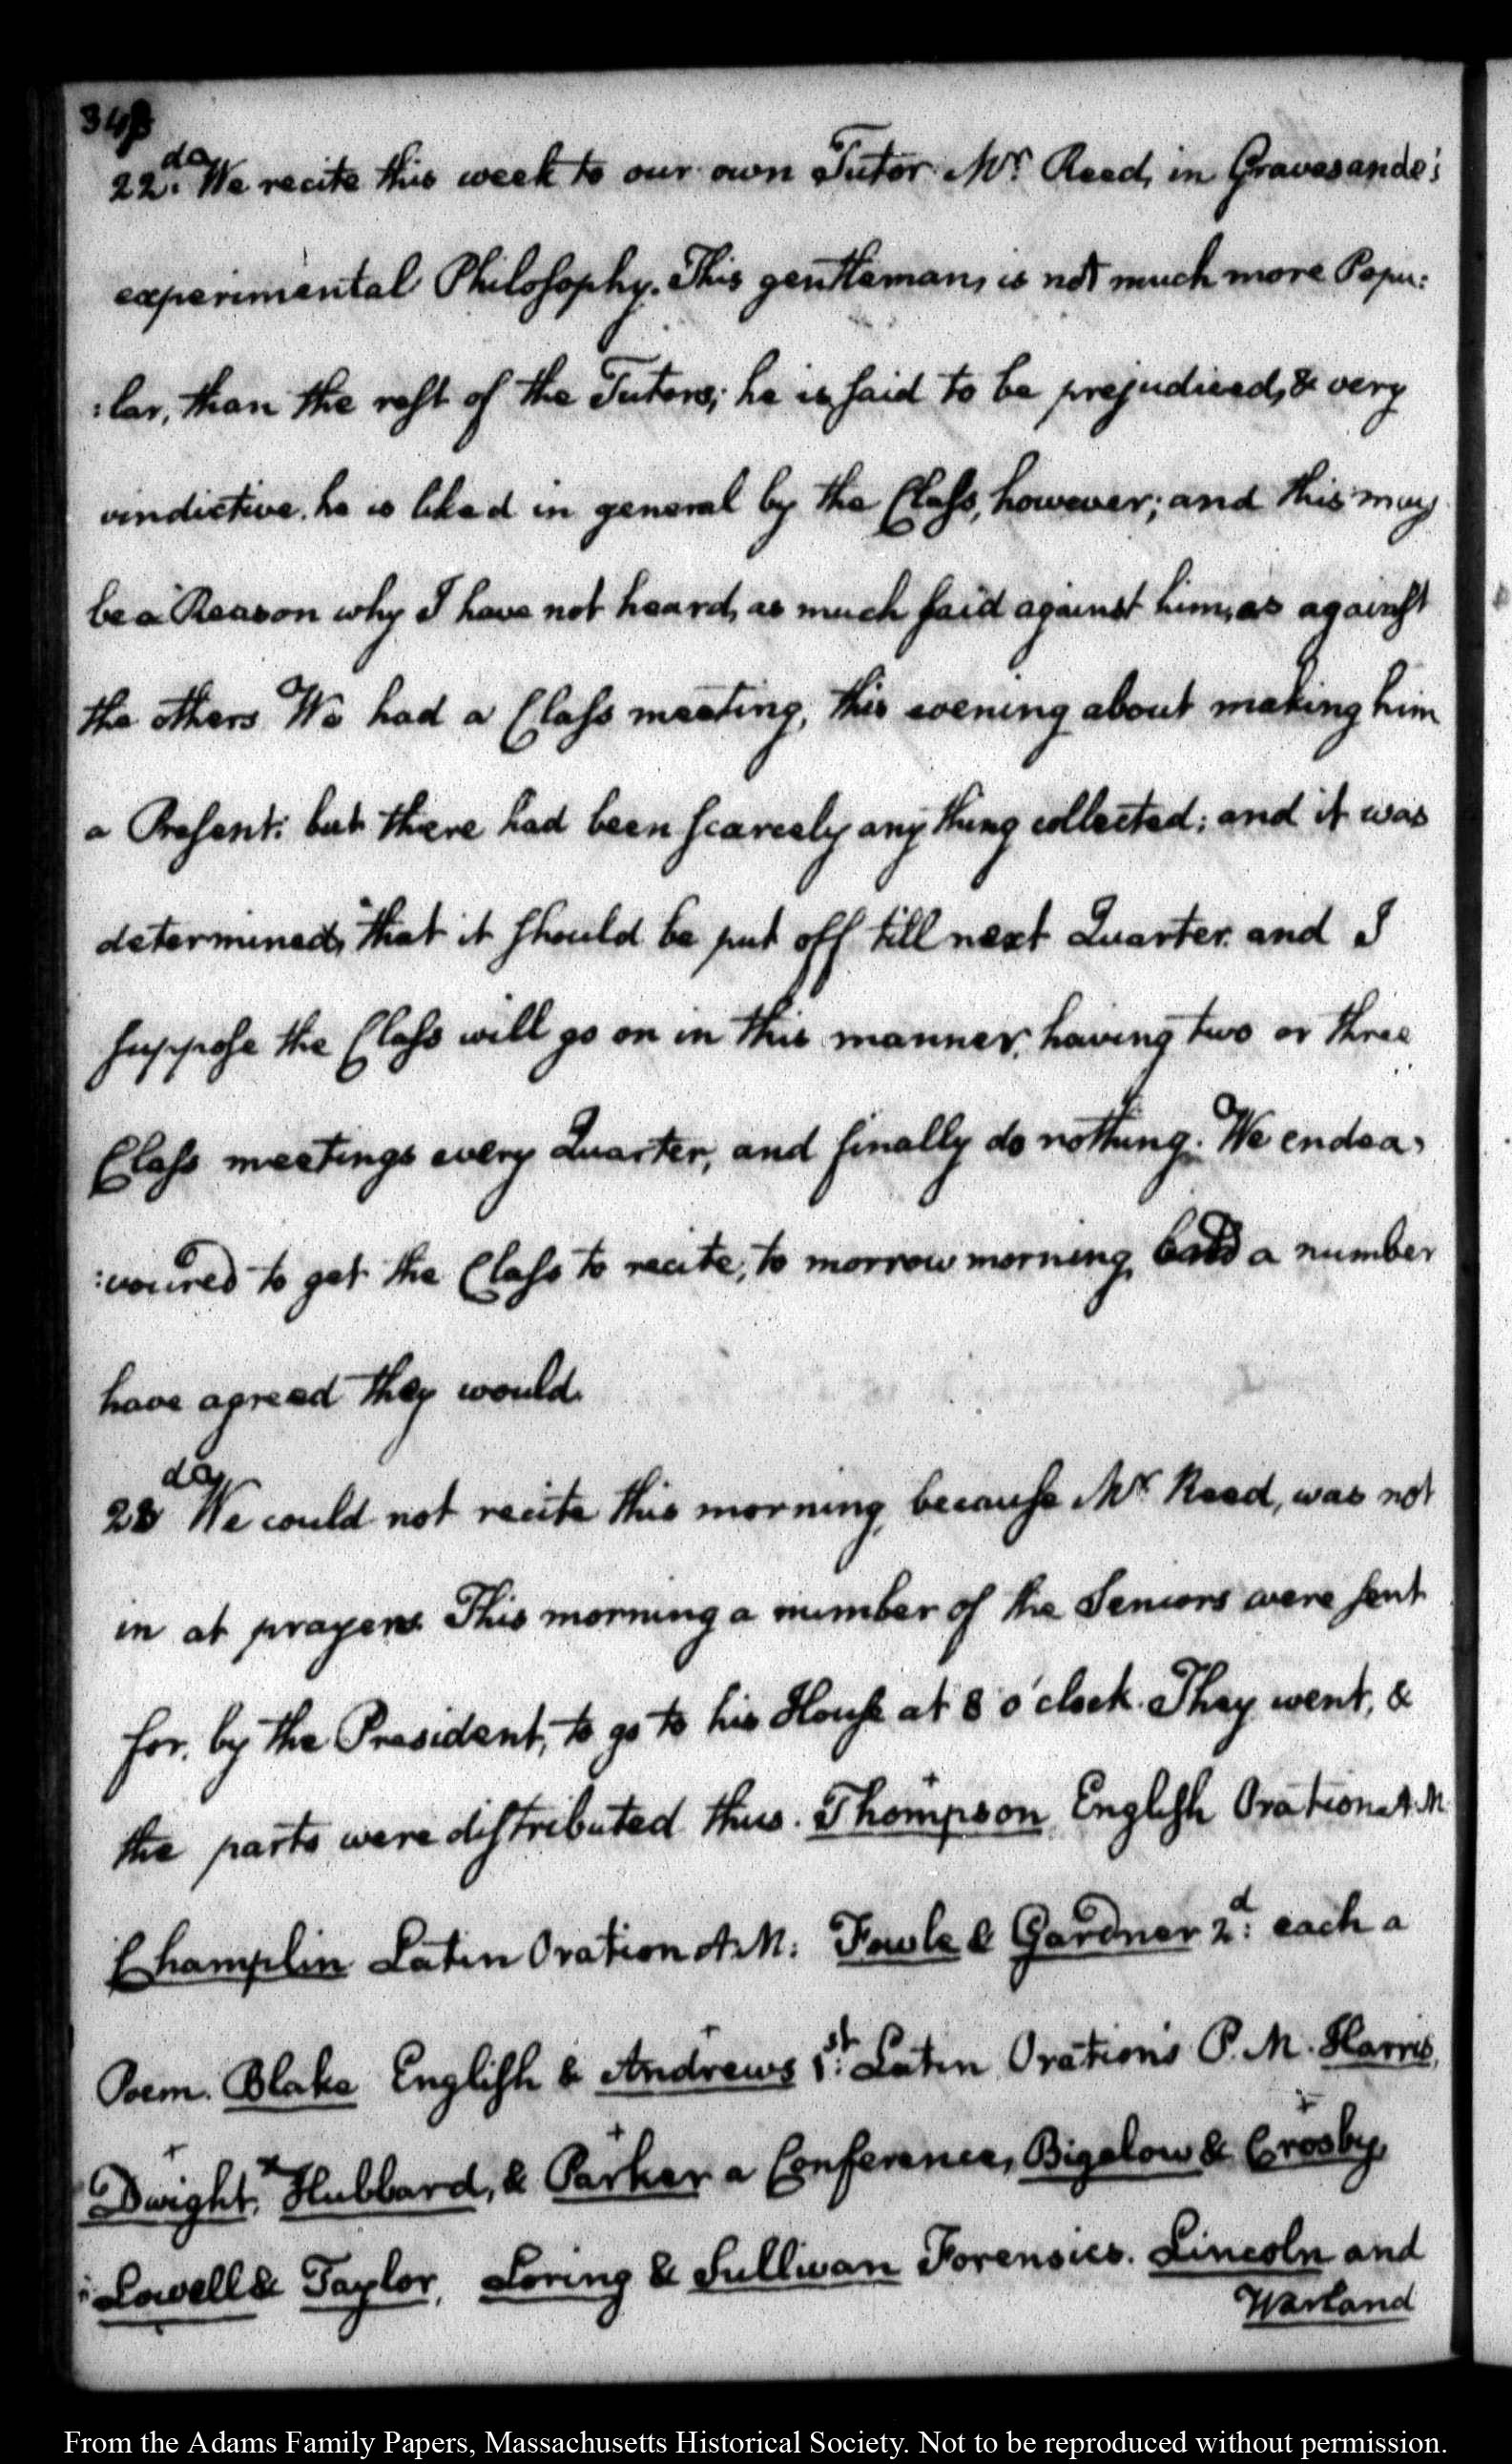 348
22.da We recite this week to our own Tutor Mr. Reed, in Gravesande's
experimental Philosophy. This gentleman, is not much more Popu:
:lar, than the rest of the Tutors; he is said to be prejudiced, & very
vindictive. he is liked in general by the Class, however; and this may
be a Reason why I have not heard, as much said against him, as against
the others We had a Class meeting, this evening about making him
a Present: but there had been scarcely any thing collected; and it was
determined, that it should be put off till next Quarter. and I
suppose the Class will go on in this manner, having two or three
Class meetings every Quarter, and finally do nothing. We endea:
:voured to get the Class to recite, to morrow morning, and a number
have agreed they would.
23da We could not recite this morning, because Mr. Reed, was not
in at prayers. This morning a number of the Seniors were sent
for, by the President, to go to his House at 8 o'clock. They went, &
the parts were distributed thus. Thompson English Oration A.M
Champlin Latin Oration A.M: Fowle & Gardner 2d: each a
Poem. Blake English & Andrews 1st: Latin Orations P.M. Harris,
Dwight, Hubbard, & Parker a Conference, Bigelow & Crosby,
Lowell & Taylor, Loring & Sullivan Forensics. Lincoln and
Warland
From the Adams Family Papers, Massachusetts Historical Society. Not to be reproduced without permission.